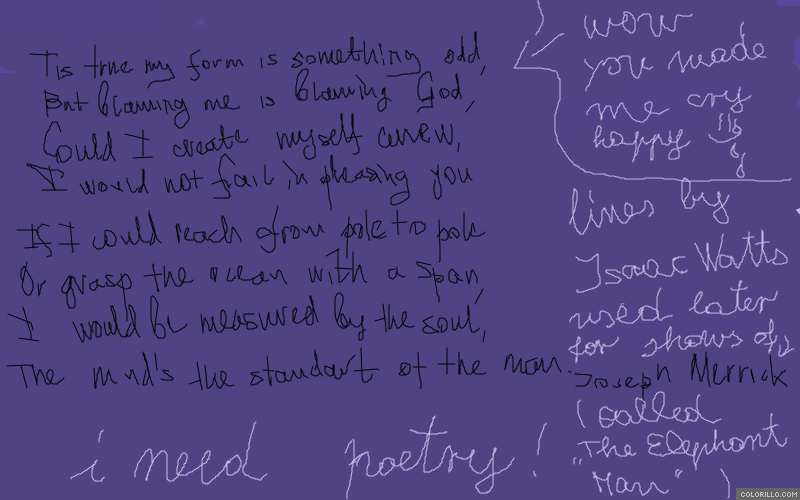 Tis true my form is something odd,
But blaming me is blaming God,
Could I create myself anew,
I would not fail in pleasing you
If I could reach from pole to pole
Or grasp the ocean with a span,
I would be measured by the soul,
The mind's the standart of the man.
wow
you made
me cry
happy
lines by
Isaac Watts
used later
for shows of
Joseph Merrick
( called
"The Elephant
Man" )
i need poetry!
COLORILLO.COM